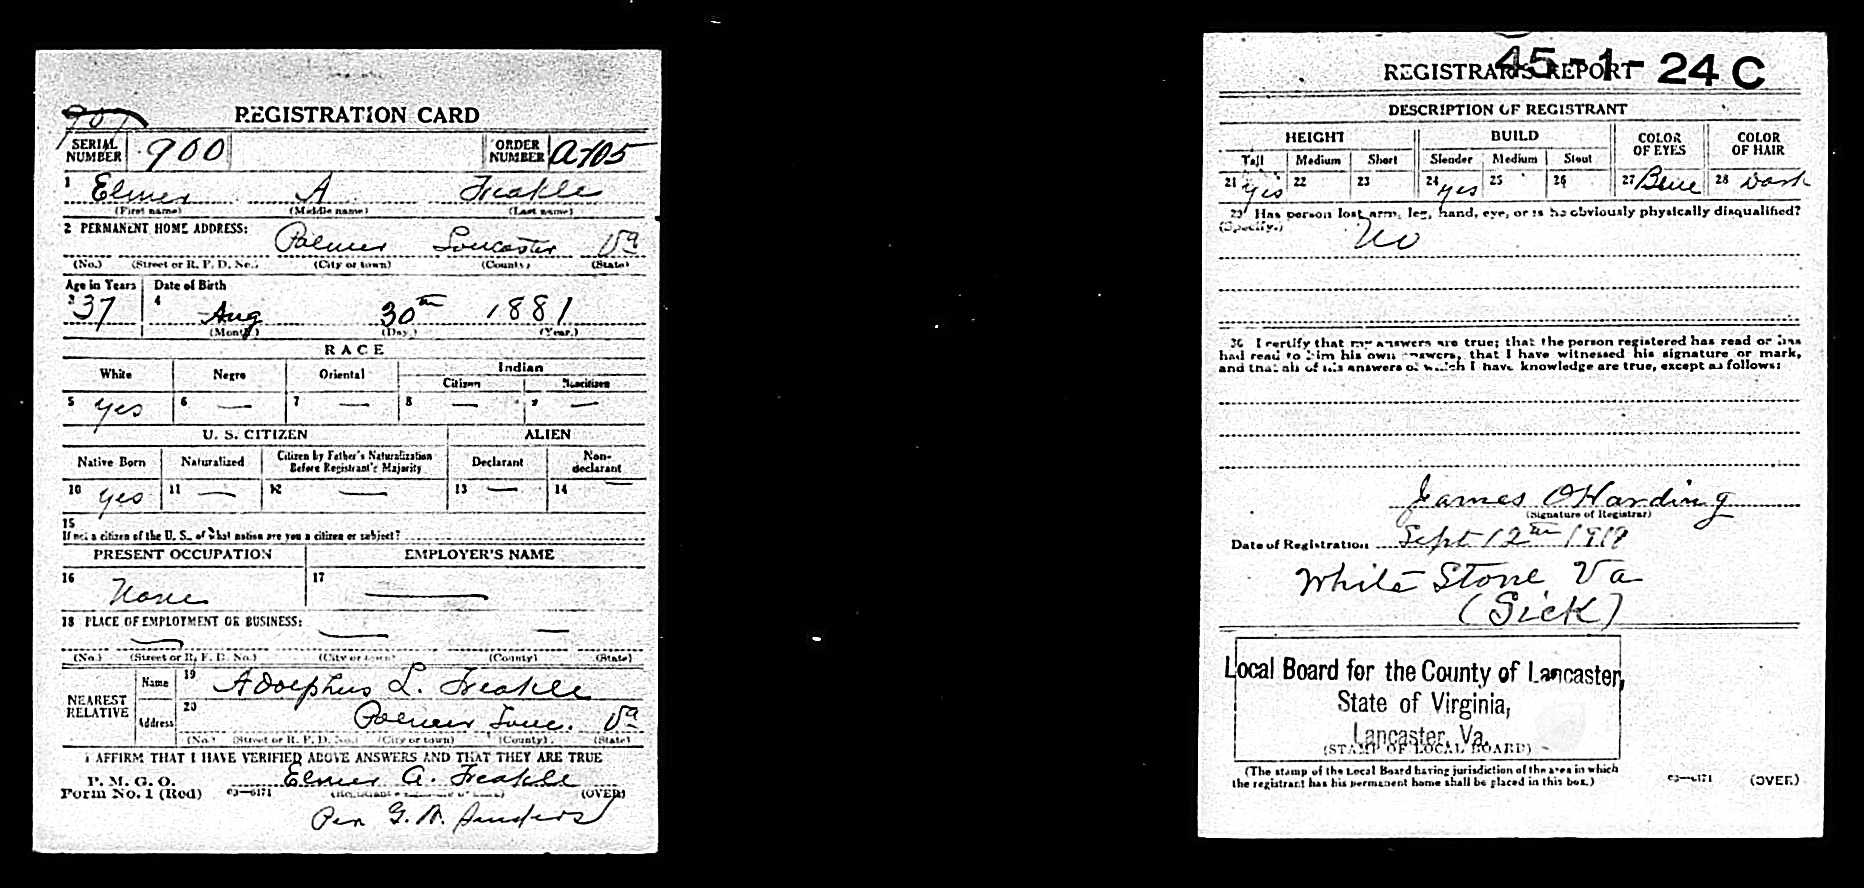 REGISTRATION CARD
SERIAL NUMBER 900 ORDER NUMBER A705
1 Elmer A Treakle
(First name) (Middle name) (Last name)
2 PERMANENT HOME ADDRESS: Palmer Lancaster Va
(No.) (Street or R. F. D. No.) (City or town) (County) (State)
Age in Years Date of Birth
3 37 4 Aug 30th 1881
(Month.) (Day.) (Year.)
RACE
White Negro Oriental Indian
Citizen Noncitizen
5 Yes 6 — 7 — 8 — 9 —
U. S. CITIZEN ALIEN
Native Born Naturalized Citizen by Father's Naturalization Before Registrant's Majority Declarant Non-declarant
10 Yes 11 — 12 — 13 — 14 —
15
If not a citizen of the U. S., of what nation are you a citizen or subject?
PRESENT OCCUPATION EMPLOYER'S NAME
16 None 17 —
18 PLACE OF EMPLOYMENT OR BUSINESS:
(No.) (Street or R. F. D. No.) (City or town) (County) (State)
NEAREST RELATIVE Name 19 Adolphus L. Treakle
Address 20 Palmer Lanc. Va
(No.) (Street or R. F. D. No.) (City or town) (County) (State)
I AFFIRM THAT I HAVE VERIFIED ABOVE ANSWERS AND THAT THEY ARE TRUE
P. M. G. O.
Form No. 1 (Red) 03—6171 Elmer A. Treakle (OVER)
Per G. W. Sanders
45-1-24 C
REGISTRAR'S REPORT
DESCRIPTION OF REGISTRANT
HEIGHT BUILD COLOR OF EYES COLOR OF HAIR
Tall Medium Short Slender Medium Stout
21 Yes 22 23 24 yes 25 26 27 Blue 28 Dark
29 Has person lost arm, leg, hand, eye, or is he obviously physically disqualified?
(Specify.) No
30 I certify that my answers are true; that the person registered has read or has
had read to him his own answers, that I have witnessed his signature or mark,
and that all of his answers of which I have knowledge are true, except as follows:
James O Harding
(Signature of Registrar)
Date of Registration Sept 12th 1918
White Stone Va
(Sick)
Local Board for the County of Lancaster,
State of Virginia,
Lancaster, Va.
(STAMP OF LOCAL BOARD)
(The stamp of the Local Board having jurisdiction of the area in which
the registrant has his permanent home shall be placed in this box.)
03—6171 (OVER)